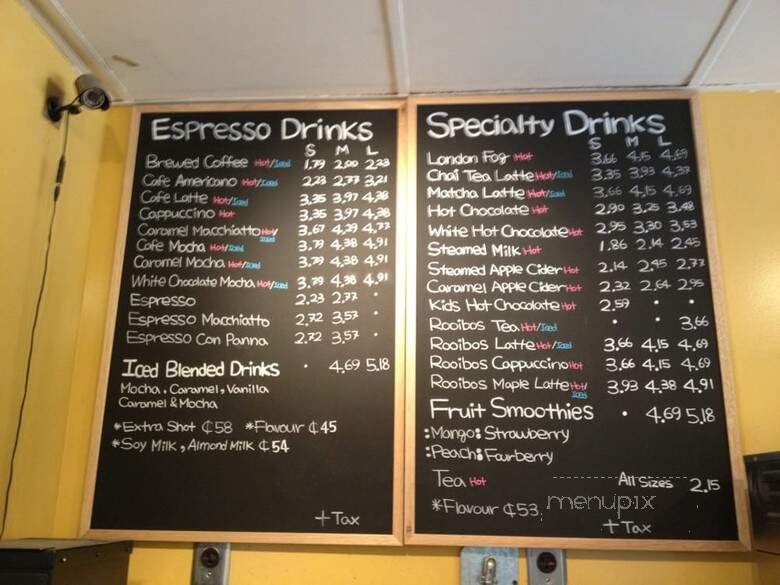 Espresso Drinks
S M L
Brewed Coffee Hot/Iced 1.79 2.00 2.23
Cafe Americano Hot/Iced 2.23 2.77 3.21
Cafe Latte Hot/Iced 3.35 3.97 4.38
Cappuccino Hot 3.35 3.97 4.38
Caramel Macchiatto Hot/Iced 3.67 4.29 4.77
Cafe Mocha Hot/Iced 3.79 4.38 4.91
Caramel Mocha Hot/Iced 3.79 4.38 4.91
White Chocolate Mocha Hot/Iced 3.79 4.38 4.91
Espresso 2.23 2.77 ·
Espresso Macchiatto 2.72 3.57 ·
Espresso Con Panna 2.72 3.57 ·
Iced Blended Drinks · 4.69 5.18
Mocha, Caramel, Vanilla
Caramel & Mocha
*Extra Shot ¢58 *Flavour ¢45
*Soy Milk, Almond Milk ¢54
+Tax
Specialty Drinks
S M L
London Fog Hot 3.66 4.15 4.69
Chai Tea Latte Hot/Iced 3.35 3.93 4.38
Matcha Latte Hot/Iced 3.66 4.15 4.69
Hot Chocolate Hot 2.90 3.25 3.48
White Hot Chocolate Hot 2.95 3.30 3.53
Steamed Milk Hot 1.86 2.14 2.45
Steamed Apple Cider Hot 2.14 2.45 2.77
Caramel Apple Cider Hot 2.32 2.64 2.95
Kids Hot Chocolate Hot 2.59 · ·
Rooibos Tea Hot/Iced · · 3.66
Rooibos Latte Hot/Iced 3.66 4.15 4.69
Rooibos Cappuccino Hot 3.66 4.15 4.69
Rooibos Maple Latte Hot/Iced 3.93 4.38 4.91
Fruit Smoothies · 4.69 5.18
:Mango :Strawberry
:Peach :Fourberry
Tea Hot All Sizes 2.15
*Flavour ¢53
menupix
+Tax